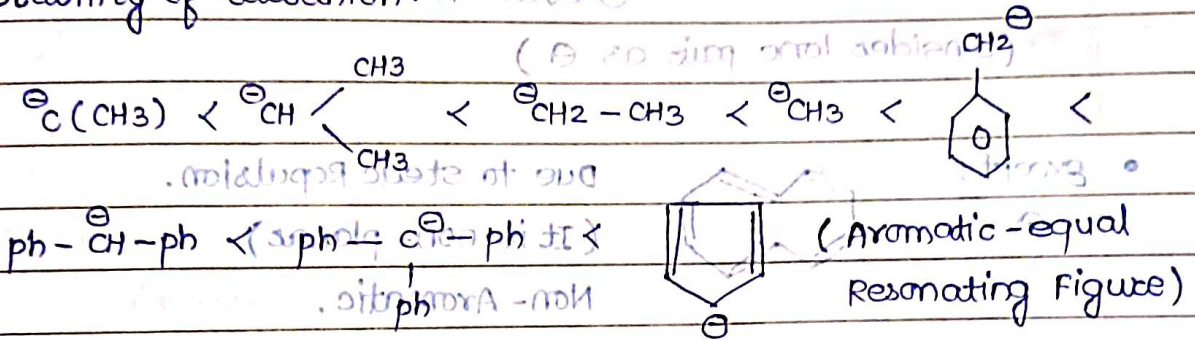 ⊖
CH2
CH3
⊖C(CH3) < ⊖CH < ⊖CH2 - CH3 < ⊖CH3 < <
CH3
ph - ⊖CH - ph < ph - C⊖ - ph < (Aromatic - equal
ph Resonating Figure)
⊖